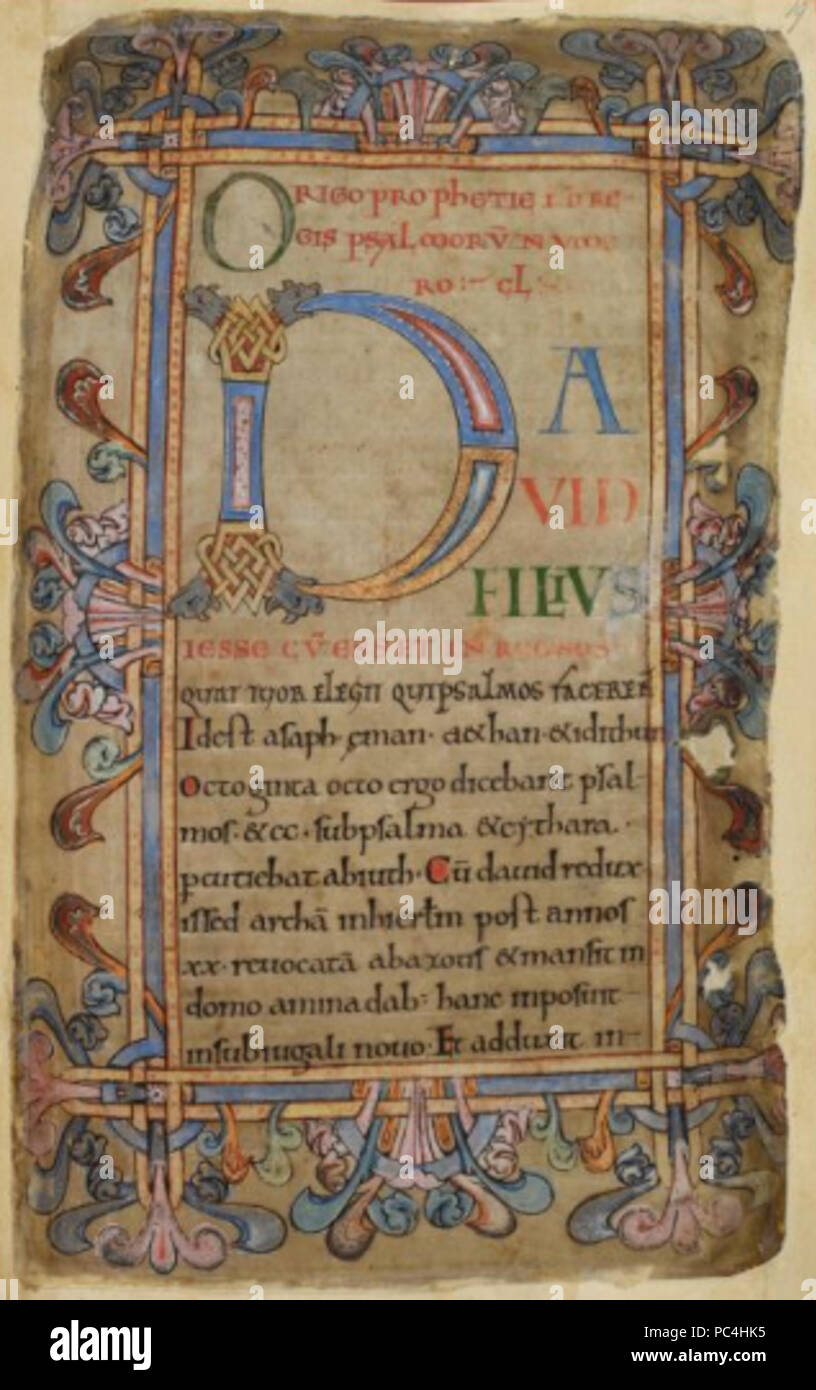 ORIGO PROPHETIE
GIS PSALMORŪ NUME
RO CL
DA
VID
FILIVS
IESSE CV̄ ESSET IN REGNO
QUATTUOR ELEGIT QUI PSALMOS FACERENT
Idest asaph eman · & ethan · & idithun
Octoginta octo ergo dicebant psal-
mos · & cc · subpsalma & cythara ·
percutiebat abiuth · Cū dauid redux-
issed archā inhierlm̄ post annos
xx · reuocatā abazotis & mansit in
domo aminadab: hanc inposuit
insubiugali nouo · Et adduxit in-
alamy
alamy
Image ID: PC4HK5
www.alamy.com